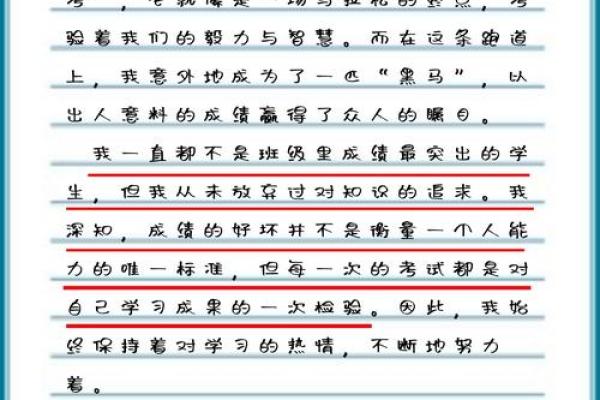 就像是一场马拉松的终点，考
验着我们的毅力与智慧。而在这条跑道
上，我意外地成为了一匹“黑马”，以
出人意料的成绩赢得了众人的瞩目。
我一直都不是班级里成绩最突出的学
生，但我从未放弃过对知识的追求。我
深知，成绩的好坏并不是衡量一个人能
力的唯一标准，但每一次的考试都是对
自己学习成果的一次检验。因此，我始
终保持着对学习的热情，不断地努力
着。